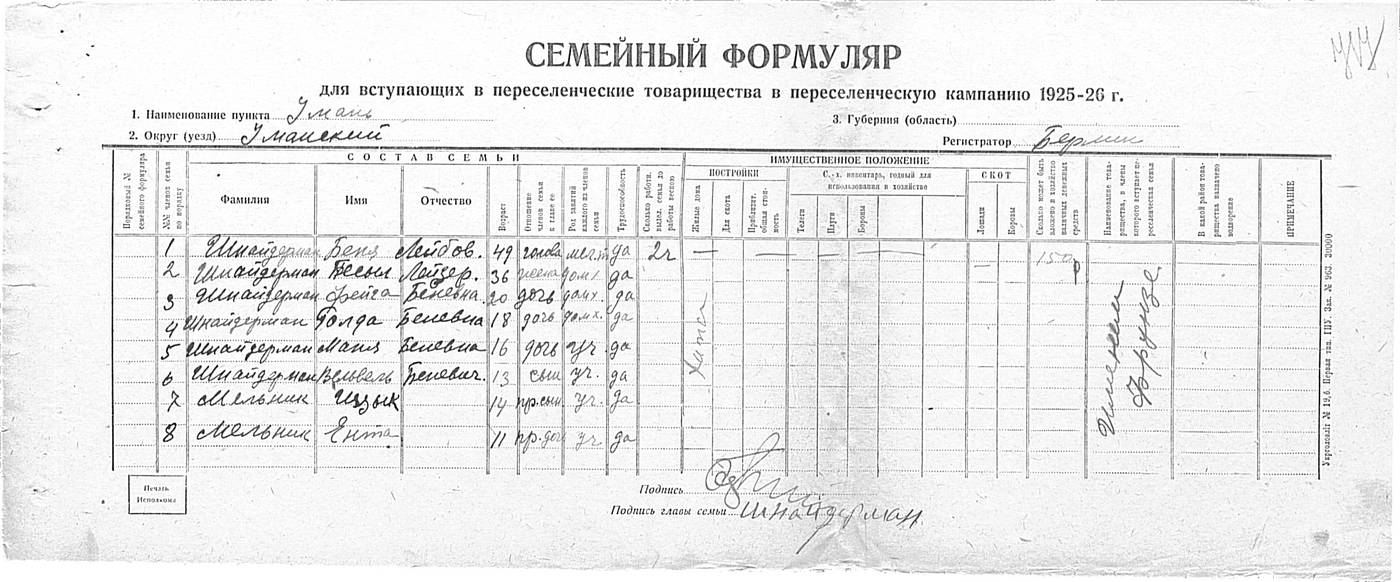 СЕМЕЙНЫЙ ФОРМУЛЯР
для вступающих в переселенческие товарищества в переселенческую кампанию 1925-26 г.
1. Наименование пункта Умань
3. Губерния (область)
2. Округ (уезд) Уманский
Регистратор
Порядковый № семейного формуляра
№№ членов семьи по порядку
СОСТАВ СЕМЬИ
Фамилия
Имя
Отчество
Возраст
Отношение членов семьи к главе ее
Род занятий каждого из членов семьи
Трудоспособность
Сколько работн. выдел. семья до работы весною
ИМУЩЕСТВЕННОЕ ПОЛОЖЕНИЕ
ПОСТРОЙКИ
Жилые дома
Для скота
Приблизит. общая стоимость
С.-х. инвентарь, годный для использования в хозяйстве
Телеги
Плуги
Бороны
СКОТ
Лошади
Коровы
Сколько может быть вложено в хозяйство наличных денежных средств
Наименование товарищества, в члены которого вступает переселенческая семья
В какой район товарищества назначено водворение
ПРИМЕЧАНИЕ
1 Шнайдерман Беня Лейбов. 49 голова да 2ч — — — — 150р
2 Шнайдерман Песыл Лейзер. 36 жена домх. да
3 Шнайдерман Фейга Беневна. 20 дочь домх. да
4 Шнайдерман Голда Беневна 18 дочь домх. да
5 Шнайдерман Маня Беневна 16 дочь уч. да
6 Шнайдерман Вельвель Беневич. 13 сын уч. да
7 Мельник Ицык 14 пр.сын уч. да
8 Мельник Ента 11 пр.доч уч да
хата
Имени Фрунзе
Печать
Исполкома
Подпись
Подпись главы семьи Шнайдерман
Укрголовліт № 19,б. Первая тип. ГПУ. Зак. № 963. 20000